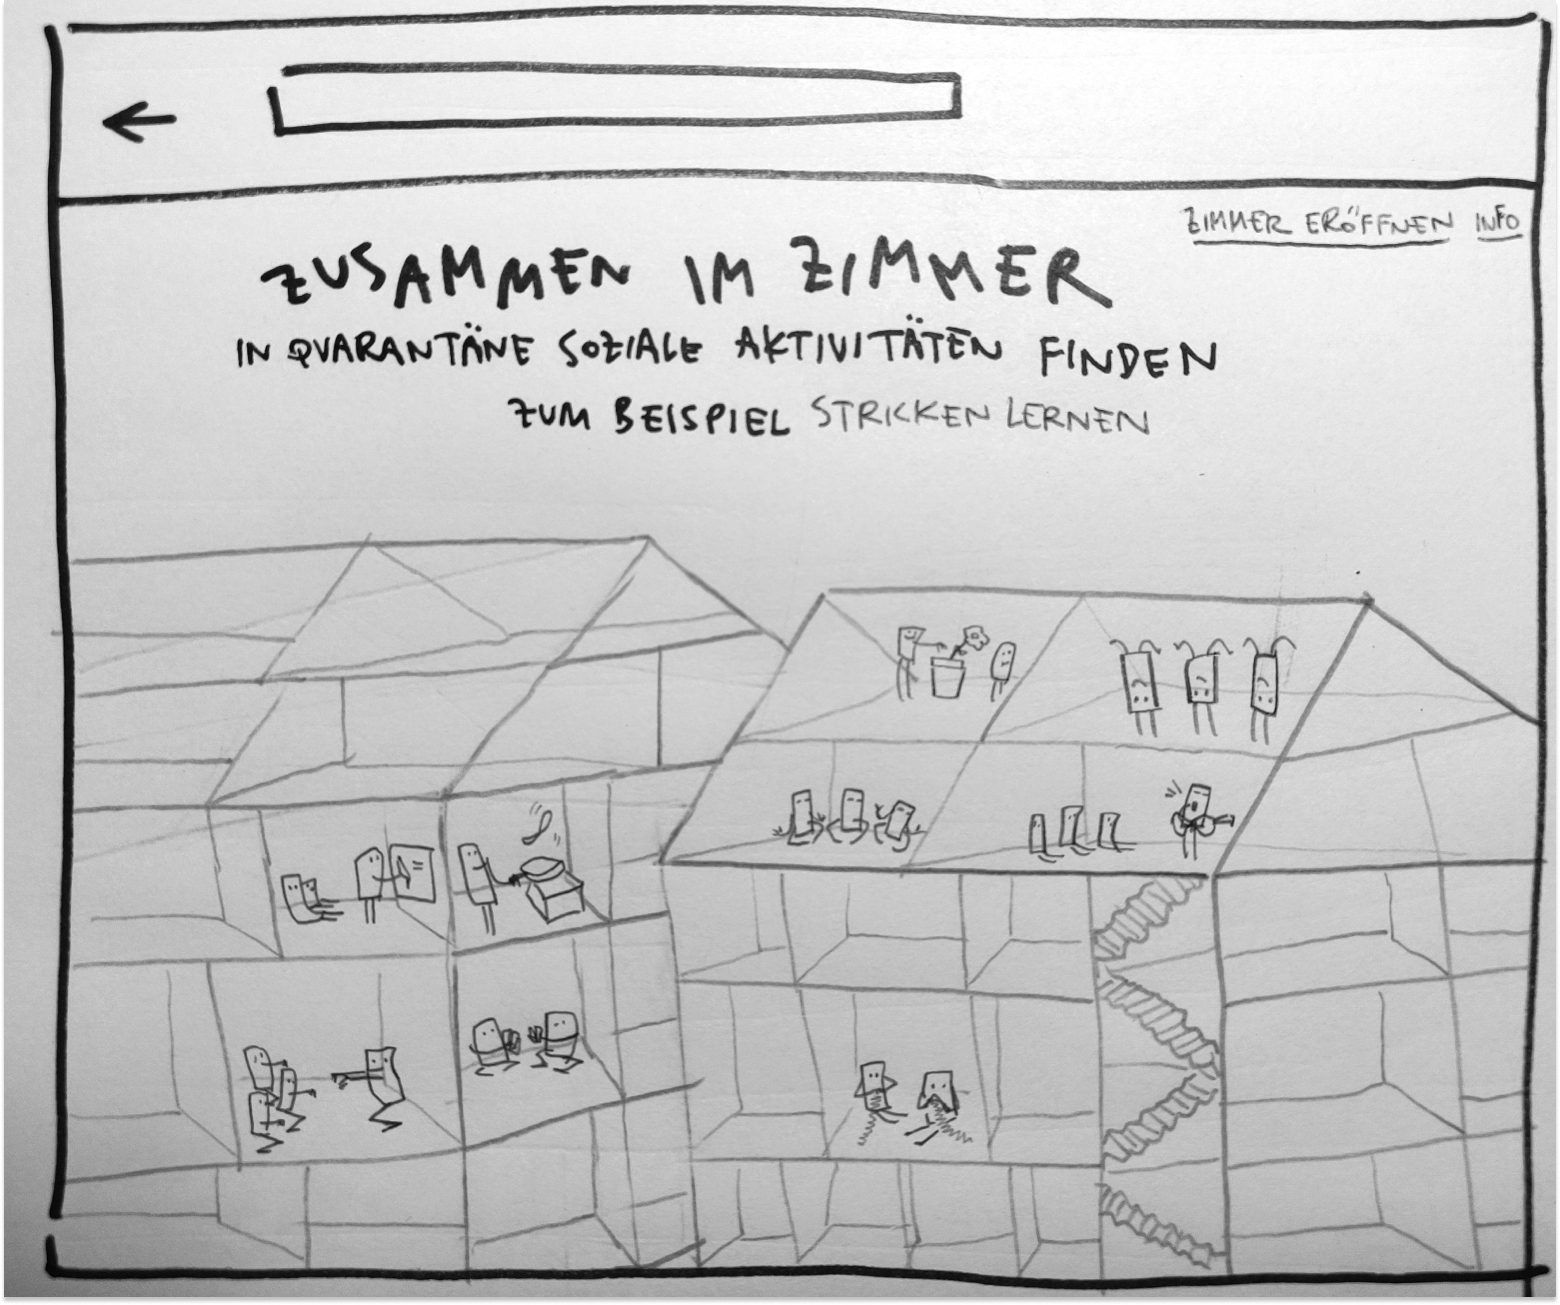 ZIMMER ERÖFFNEN INFO
ZUSAMMEN IM ZIMMER
IN QVARANTÄNE SOZIALE AKTIVITÄTEN FINDEN
ZUM BEISPIEL STRICKEN LERNEN